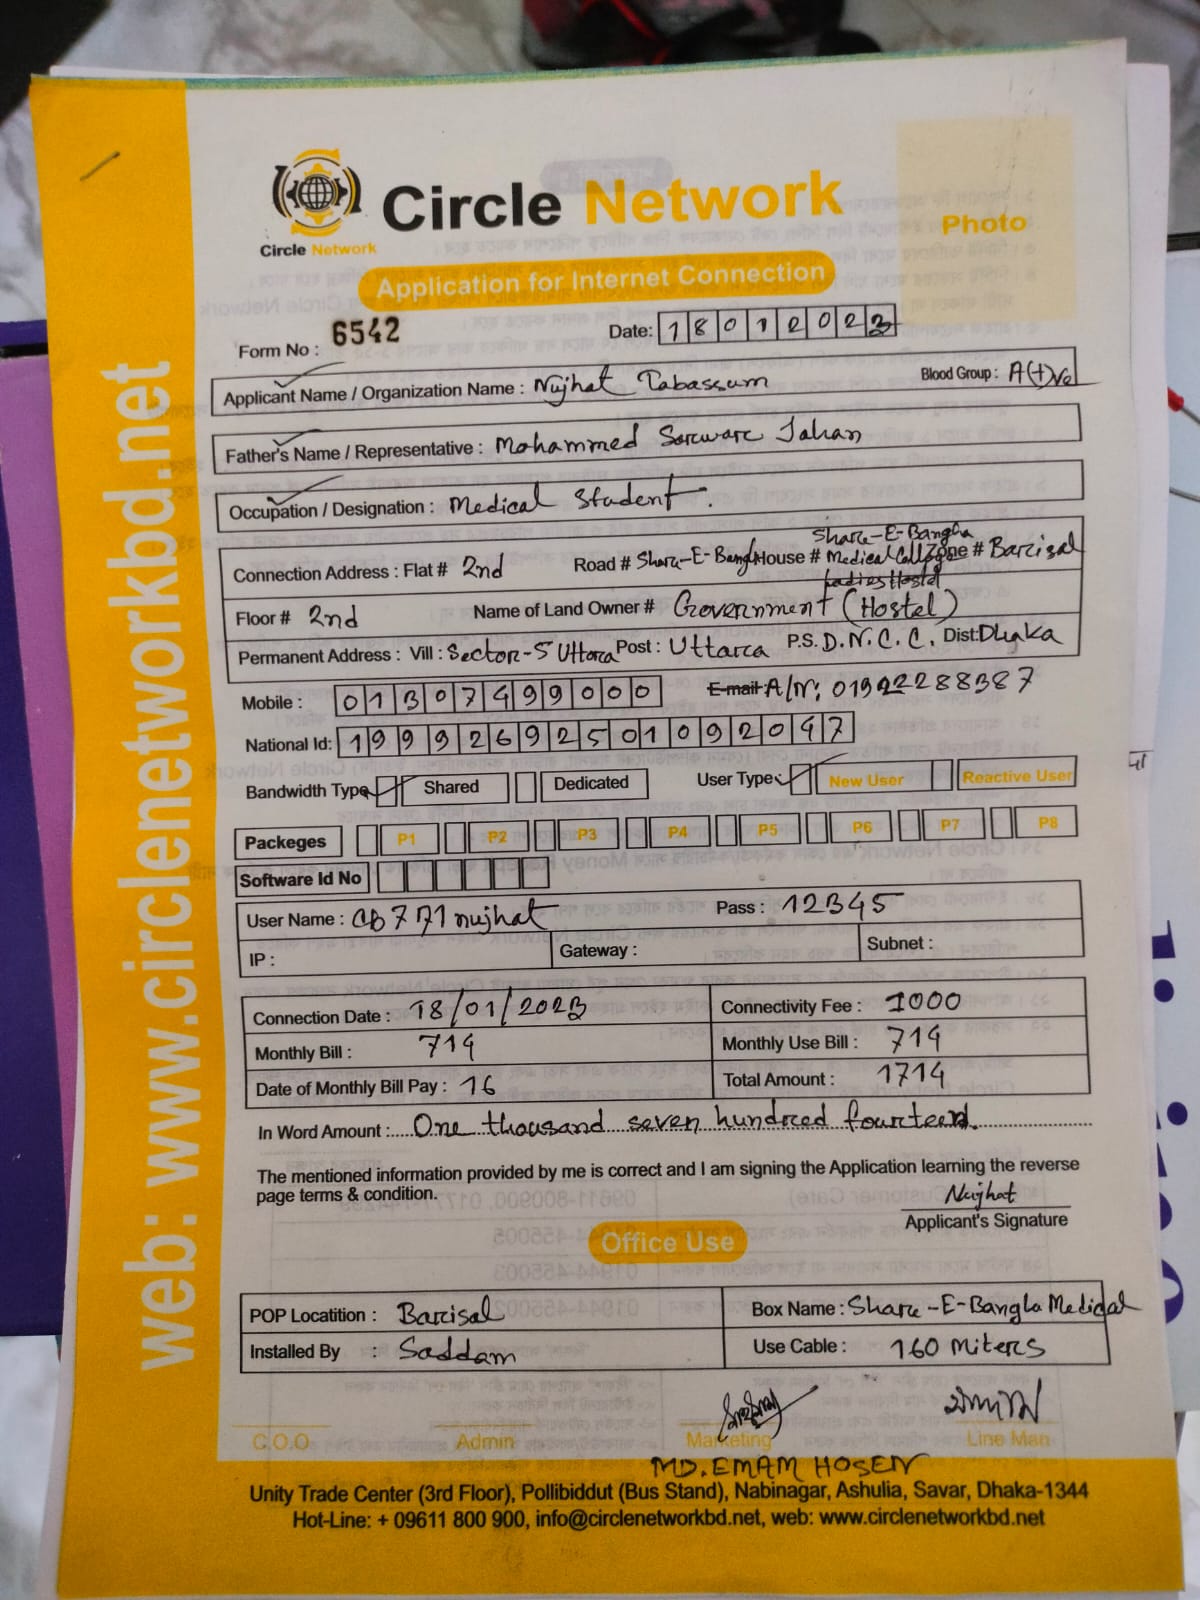 Circle Network
Circle Network
Photo
Application for Internet Connection
Form No : 6542
Date: 18012023
Applicant Name / Organization Name : Nujhat Tabassum Blood Group : A(+)ve
Father's Name / Representative : Mohammed Sarwar Jahan
Occupation / Designation : Medical Student.
Connection Address : Flat # 2nd Road # Share-E-Bangla House # Share-E-Bangla Medical College Ladies Hostel Zone # Barisal
Floor # 2nd Name of Land Owner # Government (Hostel)
Permanent Address : Vill : Sector-5 Uttara Post : Uttara P.S. D.N.C.C. Dist: Dhaka
Mobile : 01307499000 E-mail A/N: 01922288387
National Id: 19992692501092047
Bandwidth Type Shared Dedicated User Type: New User Reactive User
Packeges P1 P2 P3 P4 P5 P6 P7 P8
Software Id No
User Name : CB771nujhat Pass : 12345
IP : Gateway : Subnet :
Connection Date : 18/01/2023 Connectivity Fee : 1000
Monthly Bill : 714 Monthly Use Bill : 714
Date of Monthly Bill Pay : 16 Total Amount : 1714
In Word Amount : One thousand seven hundred fourteen.
The mentioned information provided by me is correct and I am signing the Application learning the reverse
page terms & condition.
Nujhat
Applicant's Signature
Office Use
POP Locatition : Barisal Box Name : Share-E-Bangla Medical
Installed By : Saddam Use Cable : 160 Miters
C.O.O Admin Marketing Line Man
MD. EMAM HOSEN
Unity Trade Center (3rd Floor), Pollibiddut (Bus Stand), Nabinagar, Ashulia, Savar, Dhaka-1344
Hot-Line: + 09611 800 900, info@circlenetworkbd.net, web: www.circlenetworkbd.net
web: www.circlenetworkbd.net